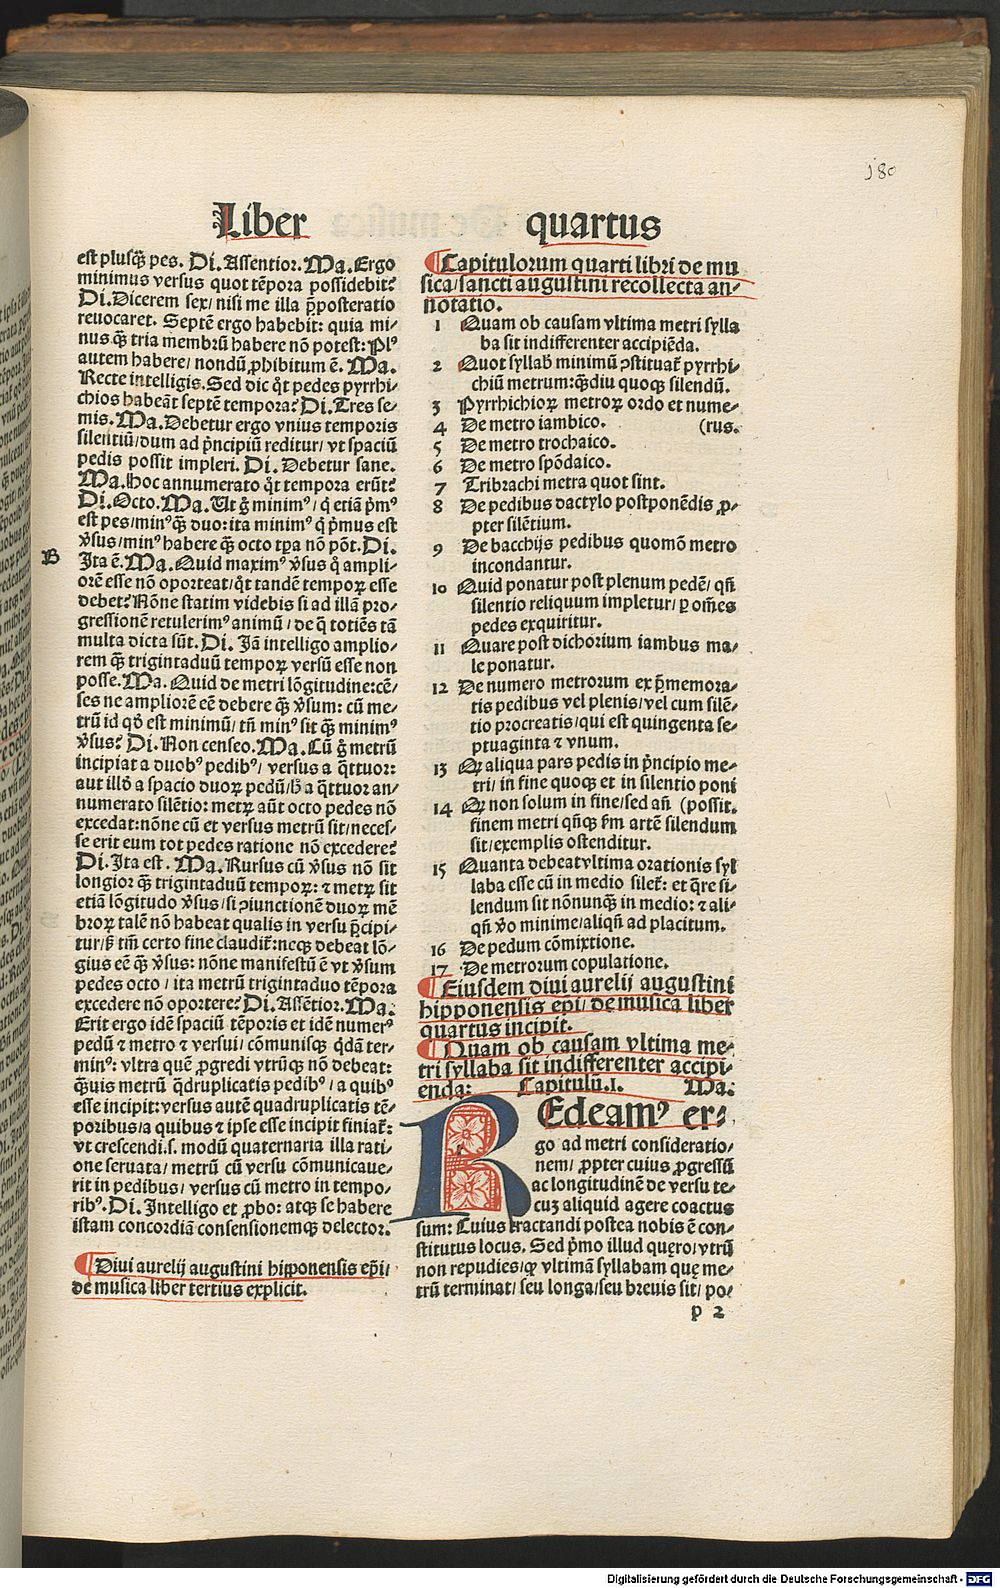 180
Liber quartus
est plusq̃ pes. Di. Assentior. Ma. Ergo
minimus versus quot tẽpora possidebit?
Di. Dicerem sex/ nisi me illa p̱posteratio
reuocaret. Septẽ ergo habebit: quia mi-
nus q̃ tria membrũ habere nõ potest: Plꝰ
autem habere/ nondũ ꝓhibitum ẽ. Ma.
Recte intelligis. Sed dic q̃t pedes pyrrhi-
chios habeãt septẽ tempora? Di. Tres se-
mis. Ma. Debetur ergo vnius temporis
silentiũ/ dum ad p̃ncipiũ reditur/ vt spaciũ
pedis possit impleri. Di. Debetur sane.
Ma. Hoc annumerato q̃t tempora erũt?
Di. Octo. Ma. Ut g̃ minimꝰ/ q̇ etiã p̃mꝰ
est pes/ minꝰ q̃ duo: ita minimꝰ q̇ p̃mus est
v̓sus/ minꝰ habere q̃ octo tp̃a nõ põt. Di.
B
Ita ẽ. Ma. Quid maximꝰ v̓sus q̊ ampli-
orẽ esse nõ oporteat/ q̃t tandẽ tempoꝝ esse
debet? Nõne statim videbis si ad illã pro-
gressionẽ retulerimꝰ animũ/ de q̃ totiẽs tã
multa dicta sũt. Di. Iã intelligo amplio-
rem q̃ trigintaduũ tempoꝝ versũ esse non
posse. Ma. Quid de metri lõgitudine: cẽ-
ses ne ampliorẽ eẽ debere q̃ v̓sum: cũ me-
trũ id qḋ est minimũ/ tñ minꝰ sit q̃ minimꝰ
v̓sus? Di. Non censeo. Ma. Cũ g̃ metrũ
incipiat a duobꝰ pedibꝰ/ versus a q̃ttuor:
aut illḋ a spacio duoꝝ pedũ/ h̓ a q̃ttuor an-
numerato silẽtio: metꝝ aũt octo pedes nõ
excedat: nõne cũ et versus metrũ sit/ neces-
se erit eum tot pedes ratione nõ excedere?
Di. Ita est. Ma. Rursus cũ v̓sus nõ sit
longior q̃ trigintaduũ tempoꝝ: ⁊ metꝝ sit
etiã lõgitudo v̓sus/ si ꝯiunctionẽ duoꝝ mẽ
broꝝ talẽ nõ habeat qualis in versu p̃cipi-
tur/ ß tm̃ certo fine claudit̃: necꝫ debeat lõ-
gius eẽ q̃ v̓sus: nõne manifestũ ẽ vt v̓sum
pedes octo/ ita metrũ trigintaduo tẽpora
excedere nõ oportere? Di. Assẽtior. Ma:
Erit ergo idẽ spaciũ tẽporis et idẽ numerꝰ
pedũ ⁊ metro ⁊ versui/ cõmunisqꝫ q̃dã ter-
minꝰ: vltra quẽ ꝓgredi vtrũqꝫ nõ debeat:
q̃uis metrũ q̃druplicatis pedibꝰ/ a quibꝰ
esse incipit: versus autẽ quadruplicatis tẽ-
poribus/ a quibus ⁊ ipse esse incipit finiat̃:
vt crescendi.s. modũ quaternaria illa rati-
one seruata/ metrũ cũ versu cõmunicaue-
rit in pedibus/ versus cũ metro in tempo-
ribꝰ. Di. Intelligo et ꝓbo: atqꝫ se habere
istam concordiã consensionemqꝫ delector.
¶ Diui aurelij augustini hipponensis ep̃i/
de musica liber tertius explicit.
¶ Capitulorum quarti libri de mu
sica/ sancti augustini recollecta an-
notatio.
1 Quam ob causam vltima metri sylla
ba sit indifferenter accipiẽda.
2 Quot syllab̓ minimũ ꝯstituat̃ pyrrhi-
chiũ metrum: q̃diu quoqꝫ silendũ.
3 Pyrrhichioꝝ metroꝝ ordo et nume-
4 De metro iambico. (rus.
5 De metro trochaico.
6 De metro spõdaico.
7 Tribrachi metra quot sint.
8 De pedibus dactylo postponẽdis ꝓ-
pter silẽtium.
9 De bacchijs pedibus quomõ metro
incondantur.
10 Quid ponatur post plenum pedẽ/ qñ
silentio reliquum impletur/ ꝑ om̃es
pedes exquiritur.
11 Quare post dichorium iambus ma-
le ponatur.
12 De numero metrorum ex p̃memora-
tis pedibus vel plenis/ vel cum silẽ-
tio procreatis/ qui est quingenta se-
ptuaginta ⁊ vnum.
13 Qꝛ aliqua pars pedis in p̃ncipio me-
tri/ in fine quoqꝫ et in silentio poni
14 Qꝛ non solum in fine/ sed añ (possit.
finem metri qñqꝫ ẜm artẽ silendum
sit/ exemplis ostenditur.
15 Quanta debeat vltima orationis syl
laba esse cũ in medio silet̃: et q̃re si-
lendum sit nõnunq̃ in medio: ⁊ ali-
qñ v̓o minime/ aliqñ ad placitum.
16 De pedum cõmixtione.
17 De metrorum copulatione.
¶ Eiusdem diui aurelij augustini
hipponensis ep̃i/ de musica liber
quartus incipit.
¶ Quam ob causam vltima me-
tri syllaba sit indifferenter accipi-
enda: Capitulũ. I. Ma:
REdeamꝰ er-
go ad metri consideratio-
nem/ ꝓpter cuius ꝓgressũ
ac longitudinẽ de versu te-
cuꝫ aliquid agere coactus
sum: Cuius tractandi postea nobis ẽ con-
stitutus locus. Sed p̃mo illud quęro/ vtrũ
non repudies/ qꝙ vltimã syllabam quę me-
trũ terminat/ seu longa/ seu breuis sit/ po-
p 2
Digitalisierung gefördert durch die Deutsche Forschungsgemeinschaft - DFG